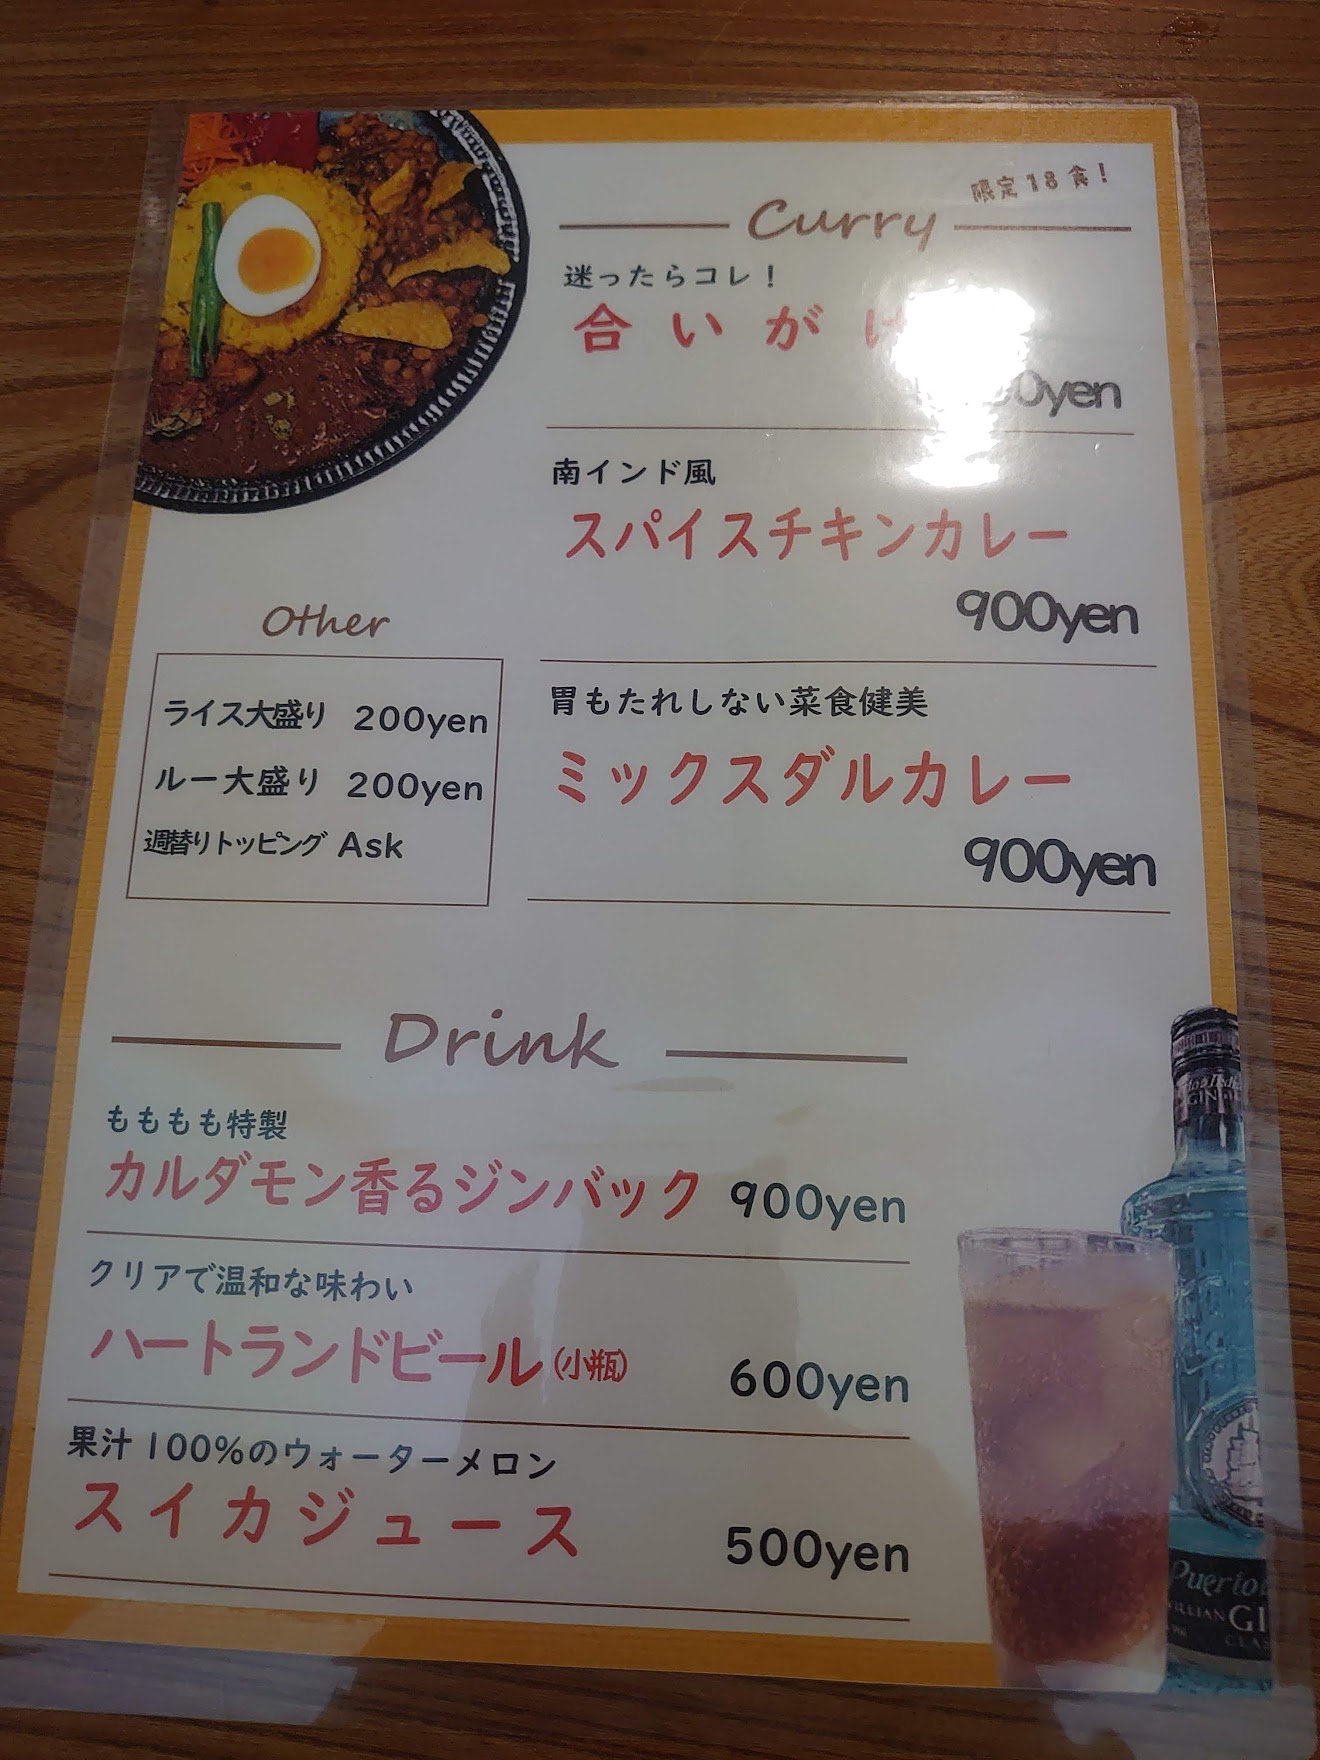 限定18食！
Curry
迷ったらコレ！
合いがけ
yen
南インド風
スパイスチキンカレー
900yen
胃もたれしない菜食健美
ミックスダルカレー
900yen
Other
ライス大盛り 200yen
ルー大盛り 200yen
週替りトッピング Ask
Drink
もももも特製
カルダモン香るジンバック 900yen
クリアで温和な味わい
ハートランドビール(小瓶) 600yen
果汁100%のウォーターメロン
スイカジュース 500yen